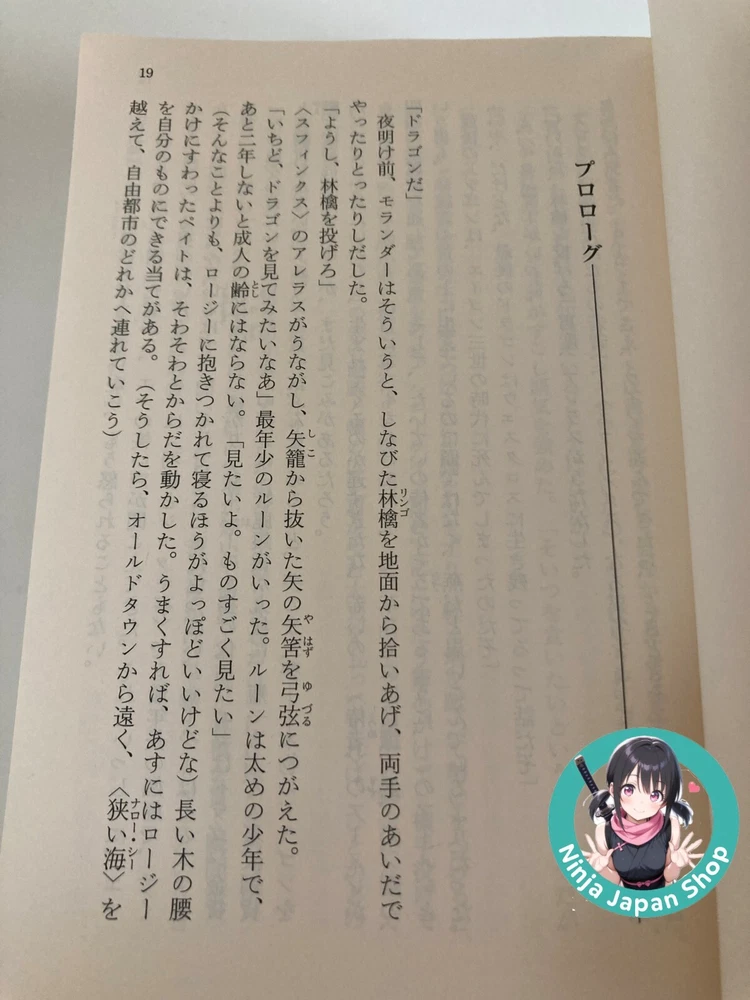 19
プロローグ
「ドラゴンだ」
夜明け前、モランダーはそういうと、しなびた林檎を地面から拾いあげ、両手のあいだで
リンゴ
やったりとったりしだした。
「ようし、林檎を投げろ」
〈スフィンクス〉のアレラスがうながし、矢籠から抜いた矢の矢筈を弓弦につがえた。
しこ
やはず
ゆづる
「いちど、ドラゴンを見てみたいなあ」最年少のルーンがいった。ルーンは太めの少年で、
あと二年しないと成人の齢にはならない。「見たいよ。ものすごく見たい」
とし
（そんなことよりも、ロージーに抱きつかれて寝るほうがよっぽどいいけどな）長い木の腰
かけにすわったペイトは、そわそわとからだを動かした。うまくすれば、あすにはロージー
を自分のものにできる当てがある。（そうしたら、オールドタウンから遠く、〈狭い海〉を
ナロー・シー
越えて、自由都市のどれかへ連れていこう）
Ninja Japan Shop